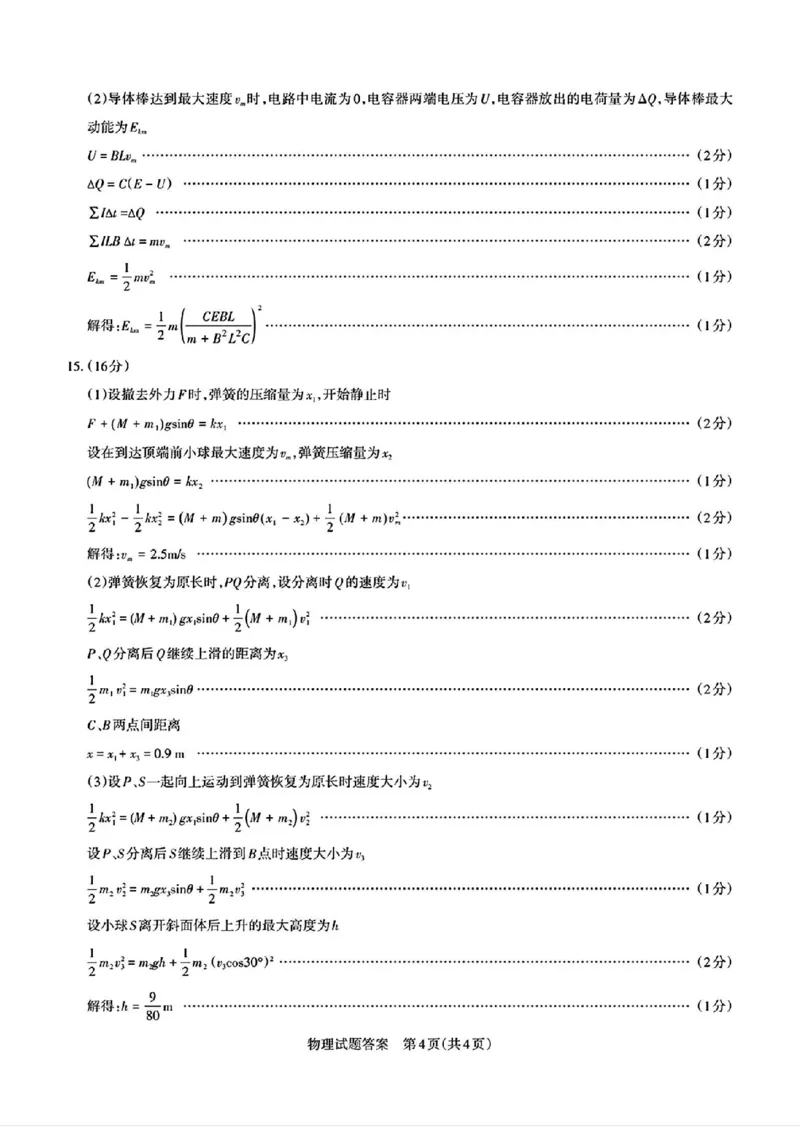 (2)导体棒达到最大速度vₘ时,电路中电流为0,电容器两端电压为U,电容器放出的电荷量为ΔQ,导体棒最大
动能为Eₖₘ
U = BLvₘ ………………………………………… (2分)
ΔQ = C(E − U) ………………………………………… (1分)
∑IΔt =ΔQ ………………………………………… (1分)
∑ILB Δt = mvₘ ………………………………………… (2分)
Eₖₘ = 1/2 mvₘ² ………………………………………… (1分)
解得:Eₖₘ = 1/2 m(CEBL/(m + B²L²C))² ………………………………………… (1分)
15. (16分)
(1)设撤去外力F时,弹簧的压缩量为x₁,开始静止时
F + (M + m₁)gsinθ = kx₁ ………………………………………… (2分)
设在到达顶端前小球最大速度为vₘ,弹簧压缩量为x₂
(M + m₁)gsinθ = kx₂ ………………………………………… (1分)
1/2 kx₁² − 1/2 kx₂² = (M + m)gsinθ(x₁ − x₂) + 1/2 (M + m)vₘ² ………………………………………… (2分)
解得:vₘ = 2.5m/s ………………………………………… (1分)
(2)弹簧恢复为原长时,PQ分离,设分离时Q的速度为v₁
1/2 kx₁² = (M + m₁) gx₁sinθ + 1/2 (M + m₁) v₁² ………………………………………… (2分)
P、Q分离后Q继续上滑的距离为x₃
1/2 m₁ v₁² = m₁gx₃sinθ ………………………………………… (2分)
C、B两点间距离
x = x₁ + x₃ = 0.9 m ………………………………………… (1分)
(3)设P、S一起向上运动到弹簧恢复为原长时速度大小为v₂
1/2 kx₁² = (M + m₂) gx₁sinθ + 1/2 (M + m₂) v₂² ………………………………………… (1分)
设P、S分离后S继续上滑到B点时速度大小为v₃
1/2 m₂ v₂² = m₂gx₃sinθ + 1/2 m₂v₃² ………………………………………… (1分)
设小球S离开斜面体后上升的最大高度为h
1/2 m₂v₃² = m₂gh + 1/2 m₂ (v₃cos30°)² ………………………………………… (2分)
解得:h = 9/80 m ………………………………………… (1分)
物理试题答案 第4页(共4页)